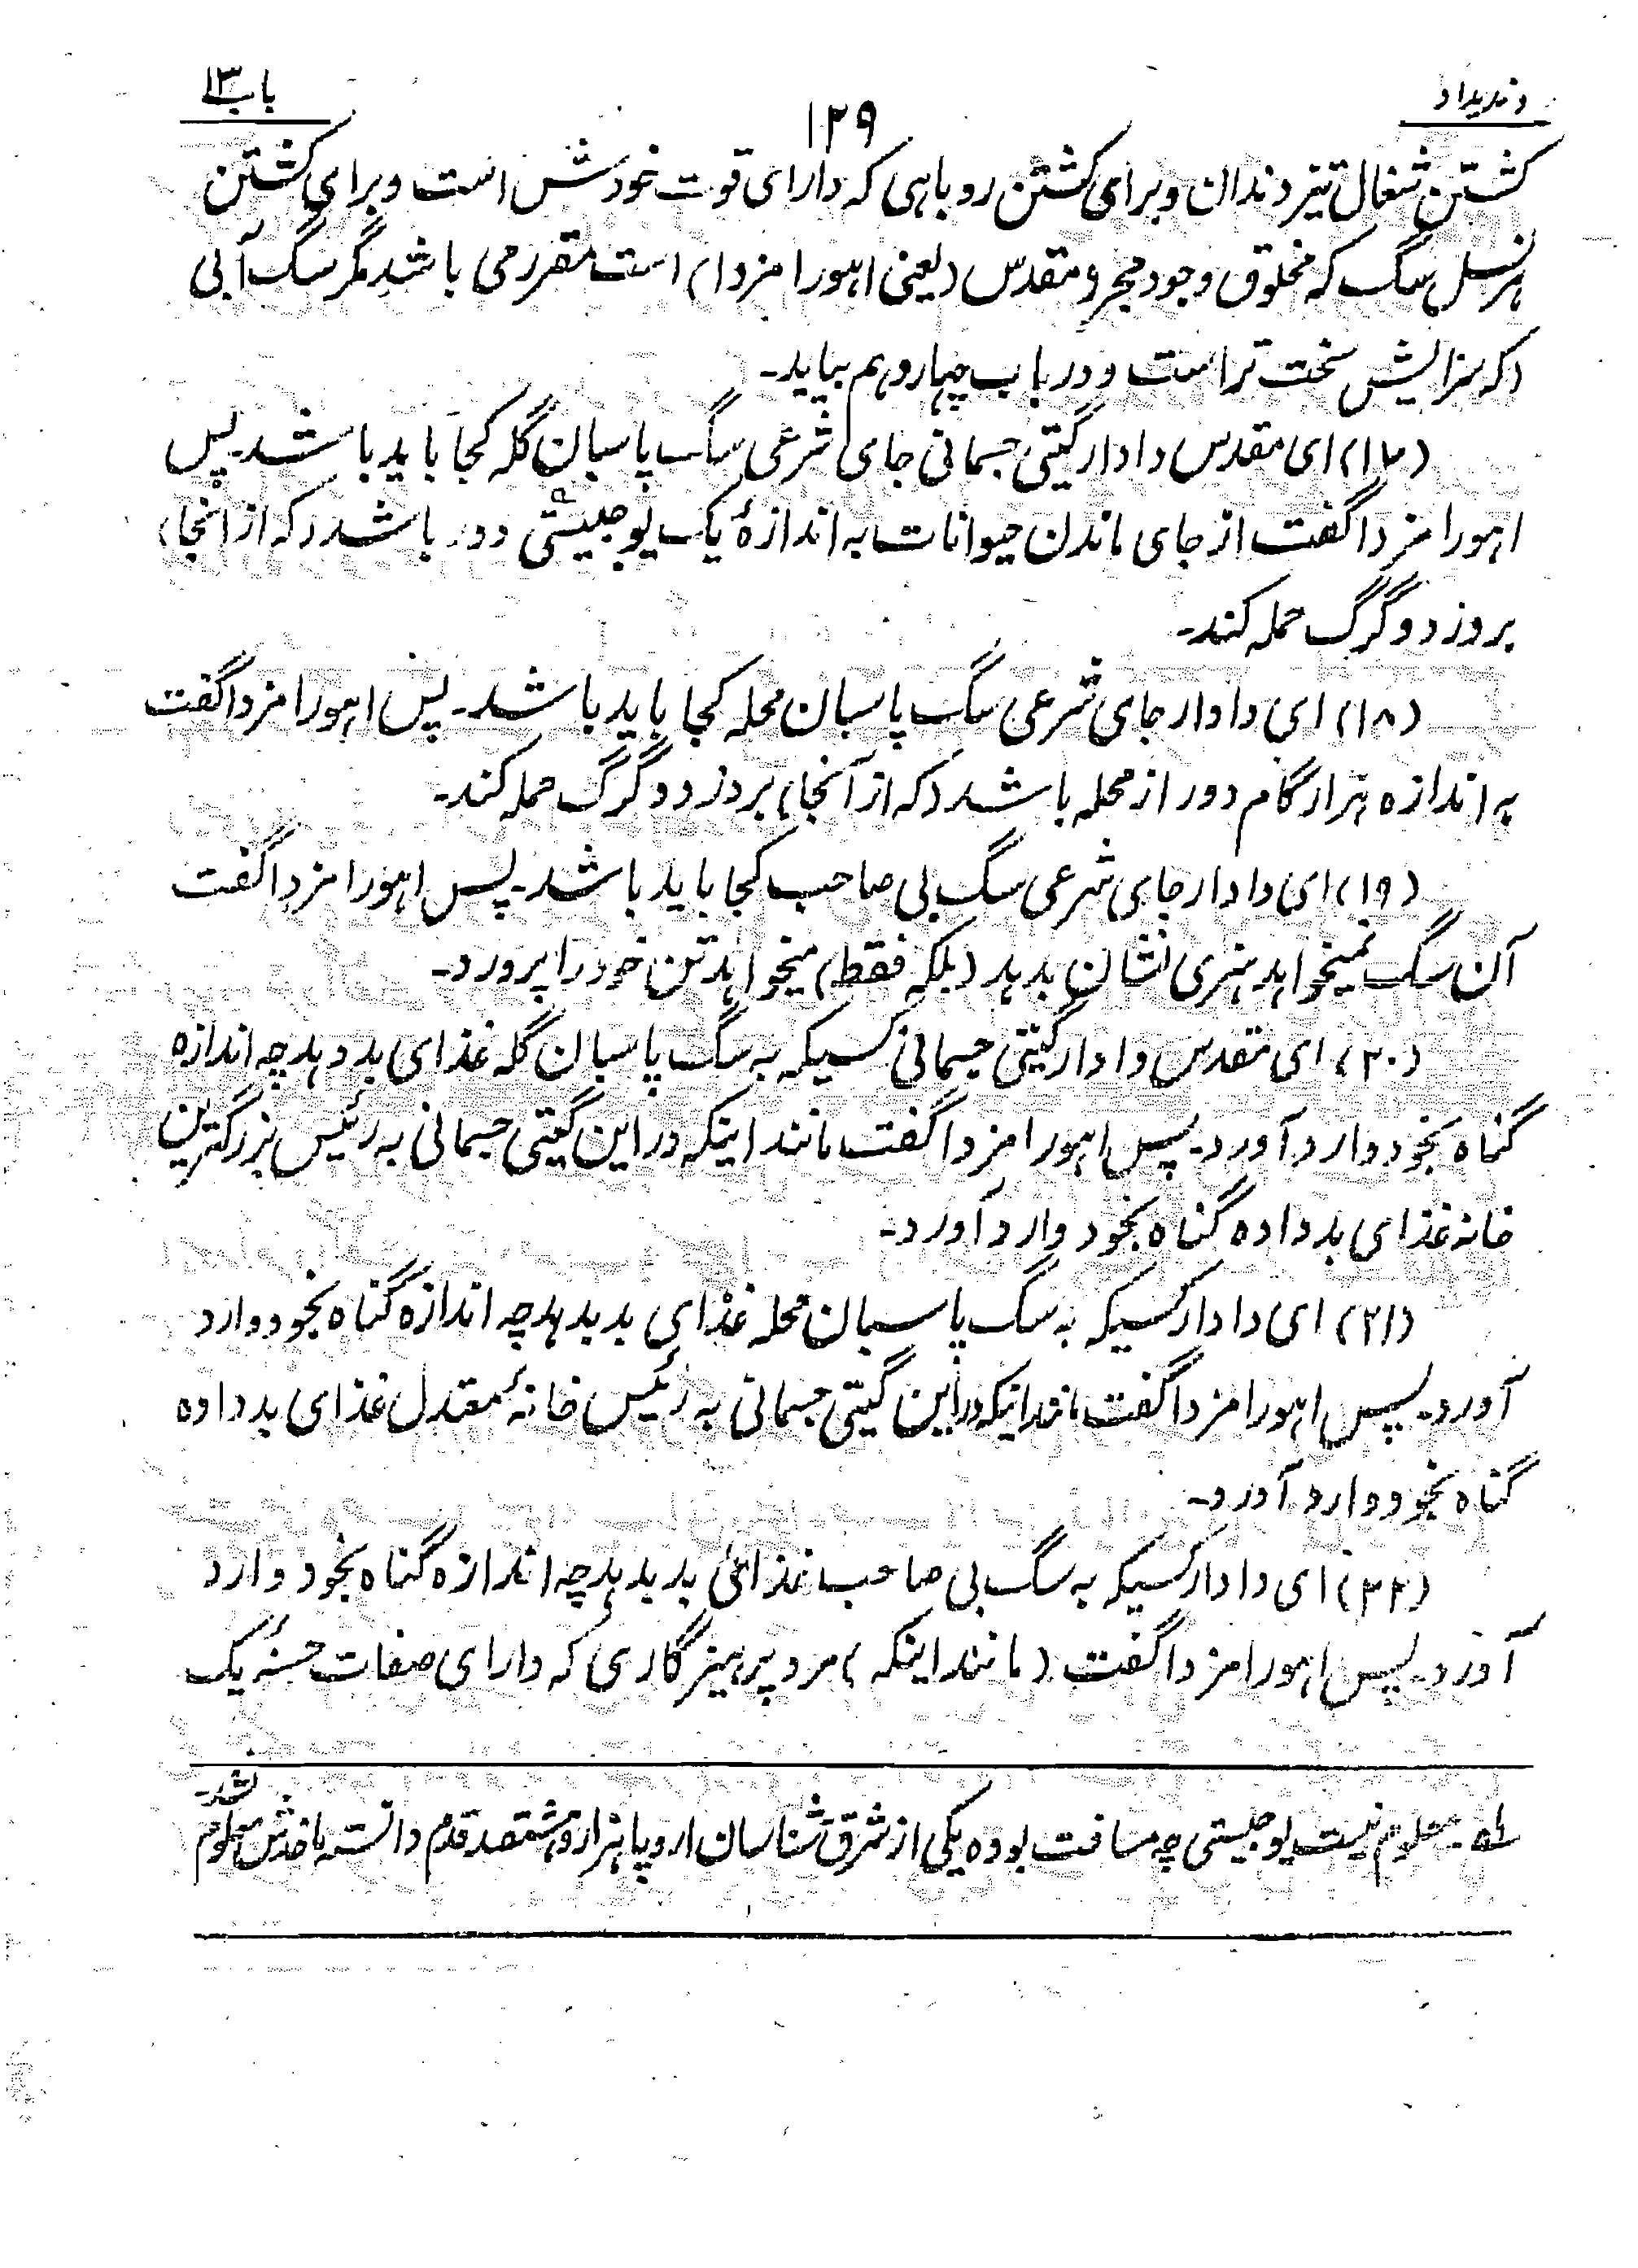 وندیداد
۱۲۹
باب ۱۳
کشتن شغال تیز دندان و برای کشتن روباهی که دارای قوت خودش است و برای کشتن
هر نسل سگ که مخلوق وجود مجرد مقدس (یعنی اهورا مزدا) است مقرر می باشد مگر سگ آبی
(که سزایش سخت تر است و در باب چهاردهم بیاید-
(۱۷) ای مقدس دادار گیتی جسمانی جای شرعی سگ پاسبان گله کجا باید باشد- پس
اهورا مزدا گفت از جای ماندن حیوانات به اندازهٔ یک یوجیستی دور باشد (که از آنجا)
بر دزد و گرگ حمله کند-
(۱۸) ای دادار جای شرعی سگ پاسبان محله کجا باید باشد- پس اهورا مزدا گفت
به اندازه هزار گام دور از محله باشد (که از آنجا) بر دزد و گرگ حمله کند-
(۱۹) ای دادار جای شرعی سگ بی صاحب کجا باید باشد- پس اهورا مزدا گفت
آن سگ نمیخواهد هنری نشان بدهد (بلکه فقط) میخواهد تن خود را پرورد-
(۲۰) ای مقدس دادار گیتی جسمانی کسیکه به سگ پاسبان گله غذای بد دهد چه اندازه
گناه بخود وارد آورد- پس اهورا مزدا گفت مانند اینکه در این گیتی جسمانی به رئیس بزرگترین
خانه غذای بد داده گناه بخود وارد آورد-
(۲۱) ای دادار کسیکه به سگ پاسبان محله غذای بد بدهد چه اندازه گناه بخود وارد
آورد- پس اهورا مزدا گفت مانند اینکه در این گیتی جسمانی به رئیس خانهٔ معتدل غذای بد داده
گناه بخود وارد آورد-
(۲۲) ای دادار کسیکه به سگ بی صاحب غذائی بد بدهد چه اندازه گناه بخود وارد
آورد- پس اهورا مزدا گفت (مانند اینکه) مرد پرهیزگاری که دارای صفات حسنهٔ یک
معلوم نیست یوجیستی چه مسافت بوده یکی از شرق شناسان اروپا هزار و هشتصد قدم دانسته ماخذش معلوم
نشد-